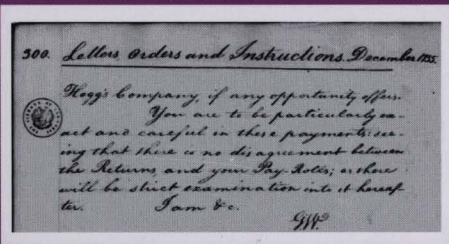 300. Letters, Orders and Instructions. December 1755.
Hogg's Company, if any opportunity offers.
You are to be particularly ex-
act and careful in these payments: see-
ing that there is no disagreement between
the Returns, and your Pay-Rolls; as there
will be strict examination into it hereaf-
ter. I am &c.
GW.